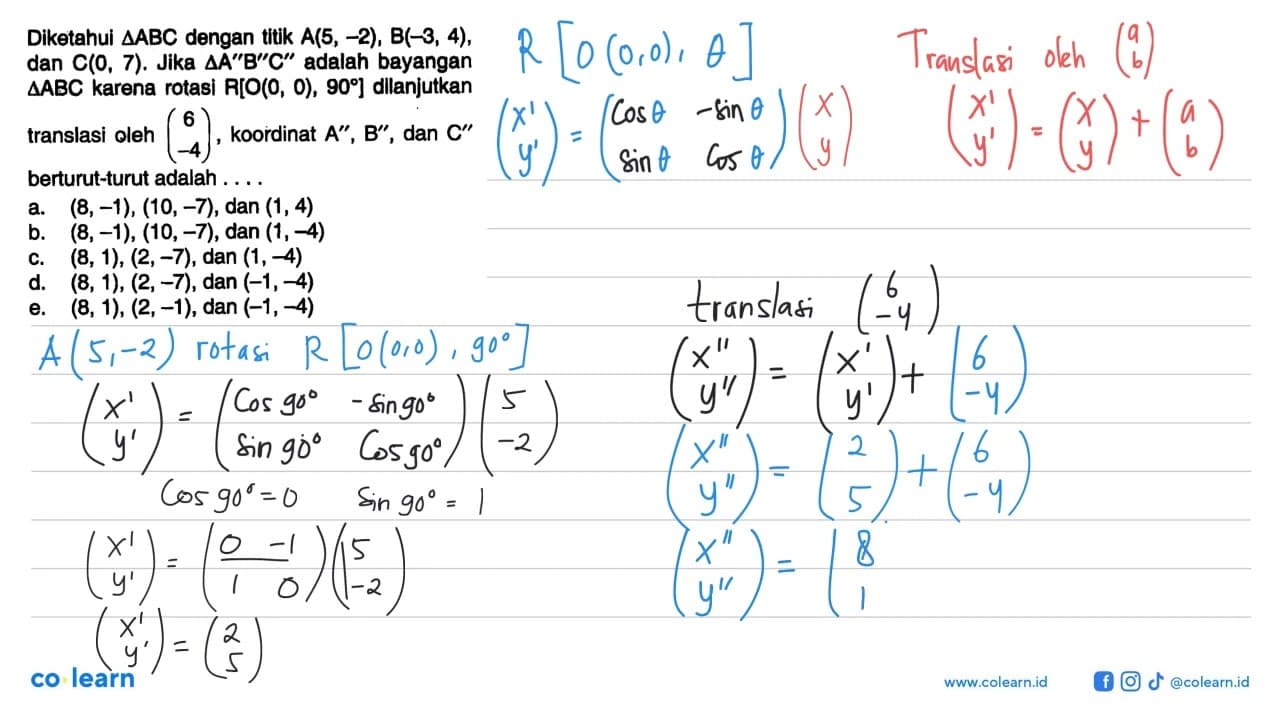 Diketahui ΔABC dengan titik A(5, –2), B(–3, 4),
dan C(0, 7). Jika ΔA″B″C″ adalah bayangan
ΔABC karena rotasi R[O(0, 0), 90°] dilanjutkan
translasi oleh (6 –4), koordinat A″, B″, dan C″
berturut-turut adalah . . . .
a. (8, –1), (10, –7), dan (1, 4)
b. (8, –1), (10, –7), dan (1, –4)
c. (8, 1), (2, –7), dan (1, –4)
d. (8, 1), (2, –7), dan (–1, –4)
e. (8, 1), (2, –1), dan (–1, –4)
R [O (0,0), θ]
(x' y') = (Cos θ -sin θ sin θ Cos θ) (x y)
Translasi oleh (a b)
(x' y') = (x y) + (a b)
A(5,-2) rotasi R [O(0,0), 90°]
(x' y') = (Cos 90° -sin 90° sin 90° Cos 90°) (5 -2)
Cos 90° = 0 Sin 90° = 1
(x' y') = (0 -1 1 0) (5 -2)
(x' y') = (2 5)
translasi (6 -4)
(x" y") = (x' y') + (6 -4)
(x" y") = (2 5) + (6 -4)
(x" y") = (8 1
co learn
www.colearn.id
@colearn.id